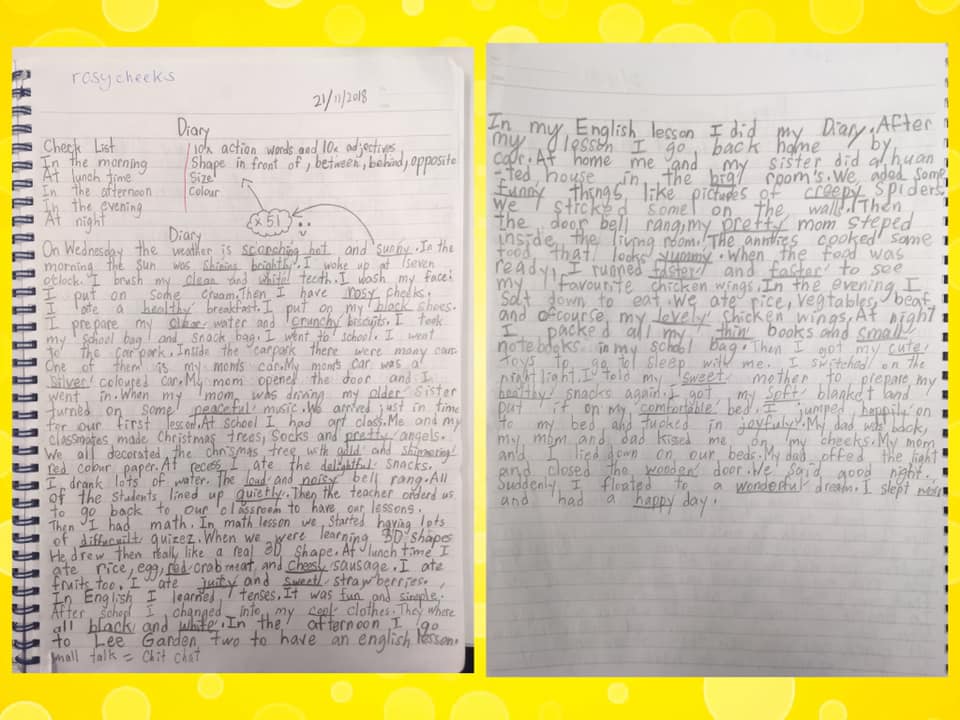 rosycheeks
21/11/2018
Diary
Check List
In the morning
At lunch time
In the afternoon
In the evening
At night
10x action words and 10x adjectives
Shape in front of, between, behind, opposite
Size
Colour
x 51
Diary
On Wednesday the weather is scorching hot and sunny. In the
morning the sun was shining brightly. I woke up at seven
o'clock. I brush my clean and white teeth. I wash my face.
I put on some cream. Then I have rosy cheeks.
I ate a healthy breakfast. I put on my black shoes.
I prepare my water and crunchy biscuits. I took
my school bag and snack bag. I went to school. I went
to the carpark. Inside the carpark there were many cars.
One of them is my mom's car. My mom's car was a
silver coloured car. My mom opened the door and I
went in. When my mom was driving my older sister
turned on some peaceful music. We arrived just in time
for our first lesson. At School I had art class. Me and my
classmates made Christmas trees, Socks and pretty angels.
We all decorated the chrismas tree with gold and shimmering
red colour paper. At recess I ate the delightful snacks.
I drank lots of water. The loud and noisy bell rang. All
of the students lined up quietly. Then the teacher orderd us
to go back to our classroom to have our lessons.
Then I had math. In math lesson we started having lots
of quizez. When we were learning 3D shapes
He drew then really like a real 3D shape. At lunch time I
ate rice, egg, red crab meat, and cheesy sausage. I ate
fruits too. I ate juity and sweet strawberries.
In English I learned tenses. It was fun and simple.
After school I changed into my cool clothes. They where
all black and white. In the afternoon I go
to Lee Garden two to have an english lesson.
small talk = Chit chat
In my English lesson I did my Diary. After
my lesson I go back home by
car. At home me and my sister did a huan
-ted house in the big room's. We aded some
funny things like pictures of creepy spiders.
We sticked some on the wall. Then
the door bell rang, my pretty mom steped
inside the living room. The annties cooked some
food that looks yummy. When the food was
ready, I runned faster and faster to see
my favourite chicken wings. In the evening I
sat down to eat. We ate rice, vegtables, beaf,
and ofcourse, my lovely chicken wings. At night
I packed all my thin books and small
notebooks in my school bag. Then I got my cute
toys to go to sleep with me. I switched on the
night light. I told my sweet mother to prepare my
healthy snacks again. I got my soft blanket and
put it on my comfortable bed. I jumped happily on
to my bed and tucked in joyfuly. My dad was back,
my mom and dad kissed me on my cheeks. My mom
and I lied down on our beds. My dad offed the light
and closed the wooden door. We said good night.
Suddenly I floated to a wonderful dream. I slept well
and had a happy day.